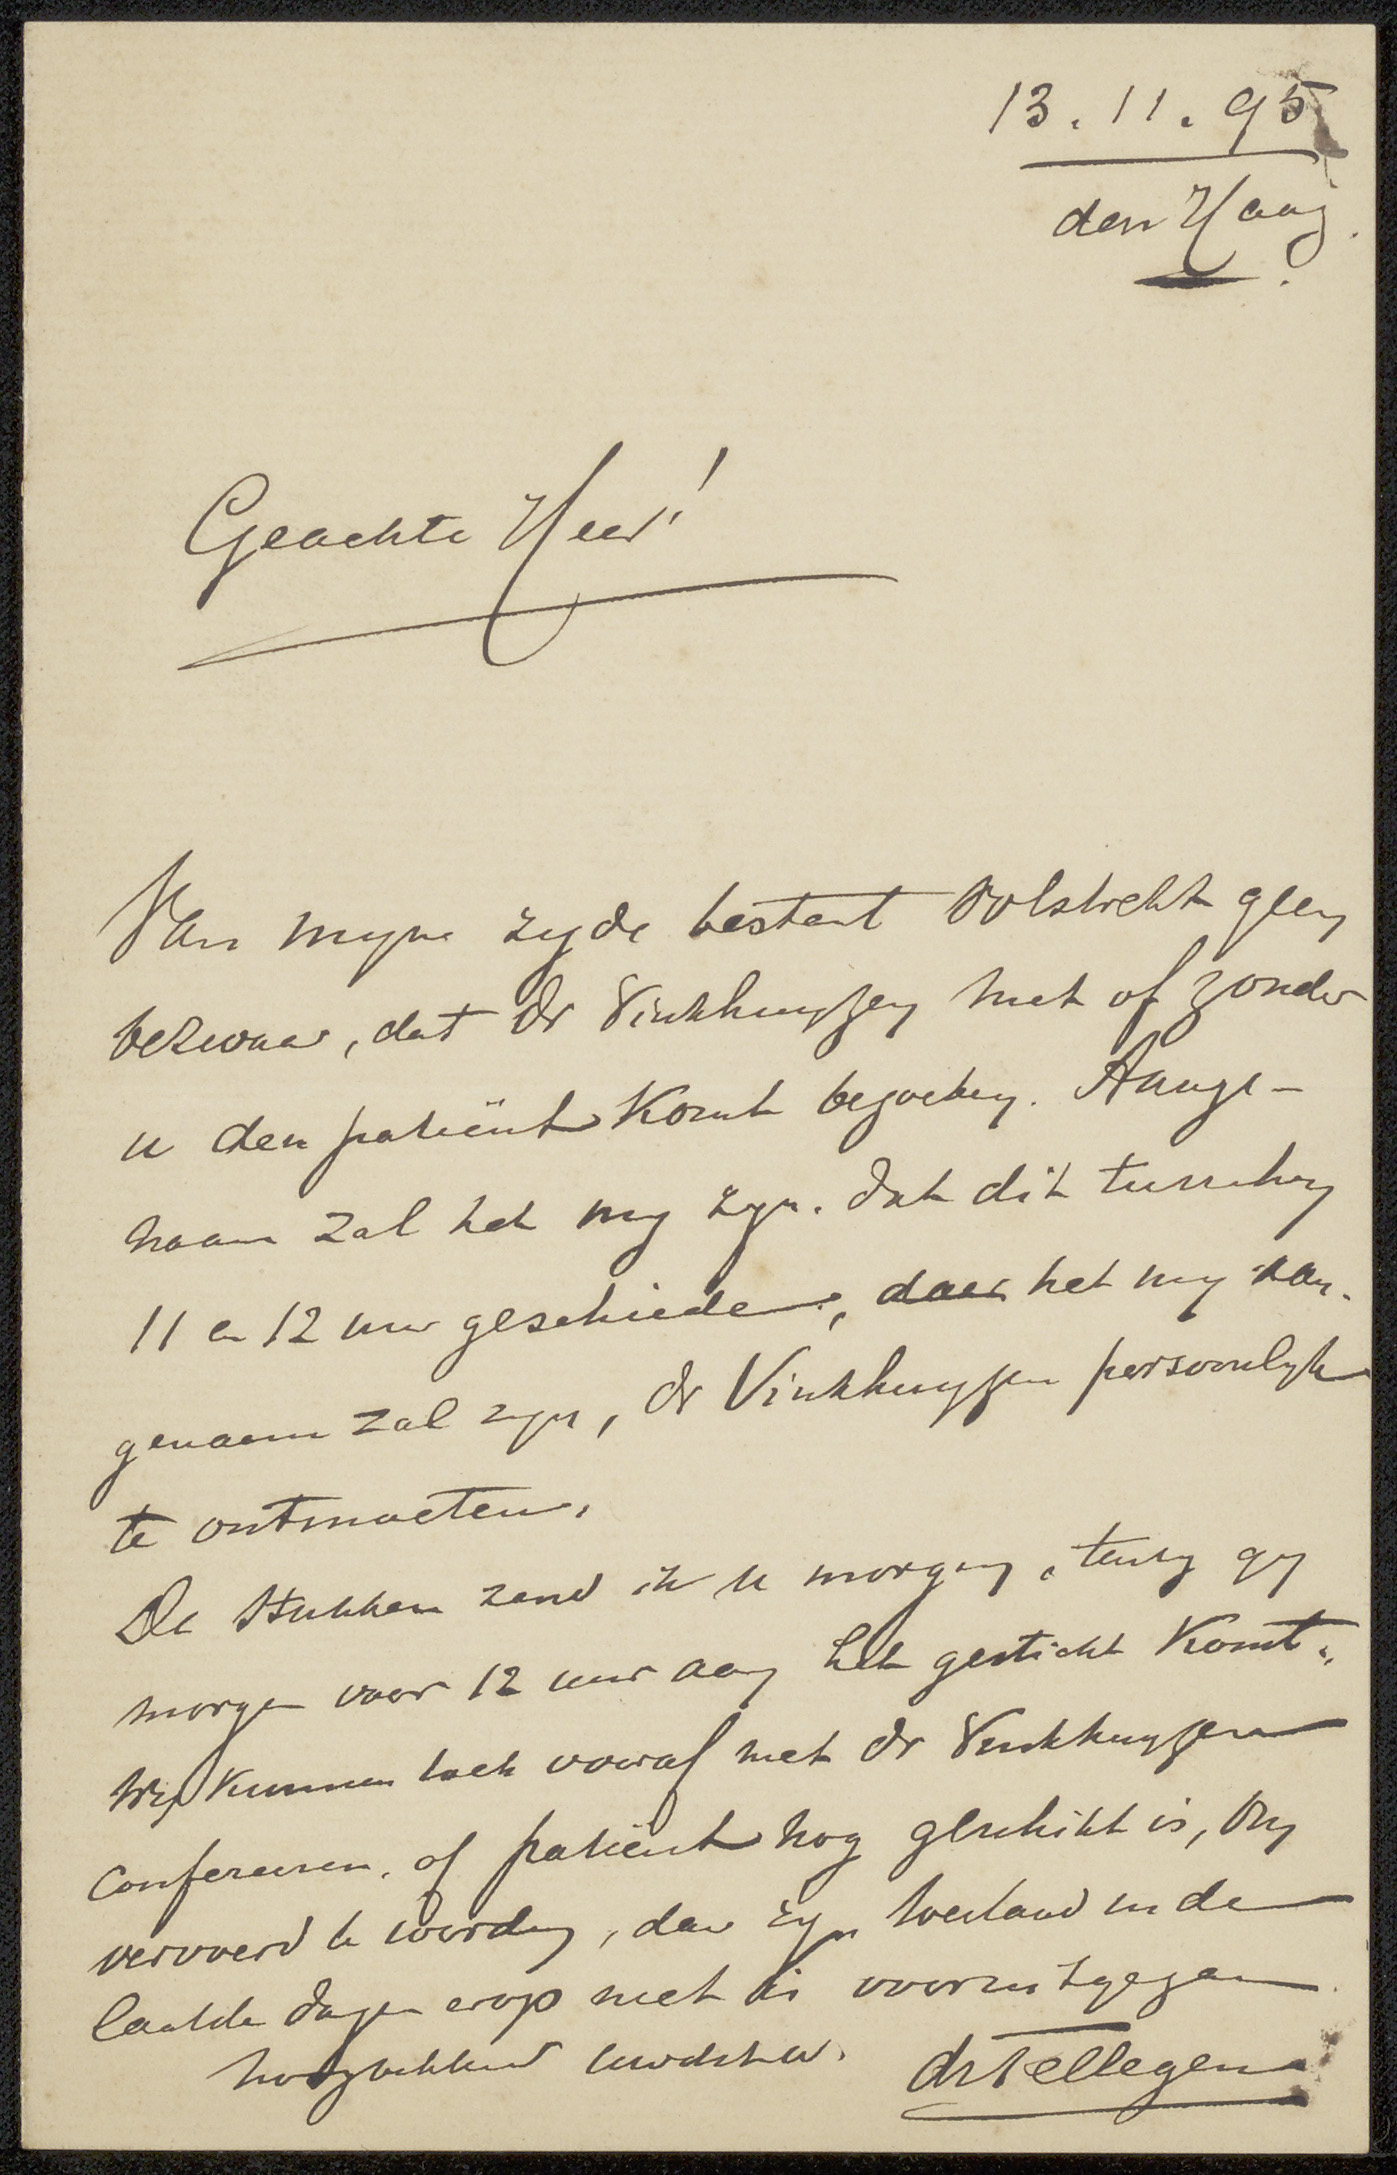 13.11.95
den Haag.
Geachte Heer!
Van myne zyde bestaat volstrekt geen
bezwaar, dat Dr Vinkhuyzen met of zonder
u den patiënt komt bezoeken. Aange-
naam zal het my zyn. dat dit tusschen
11 en 12 uur geschiede, daar het my aan-
genaam zal zyn, Dr Vinkhuyzen persoonlyk
te ontmoeten.
De stukken zend ik u morgen, tenzy gy
morgen voor 12 uur aan het gesticht komt.
Wy kunnen toch vooraf met Dr Vinkhuyzen
confereeren. of patient nog geschikt is, om
vervoerd te worden, daar zyn toestand in de
laatste dagen erop niet is vooruitgegaan
hoogachtend uwdstw.
drTellegen